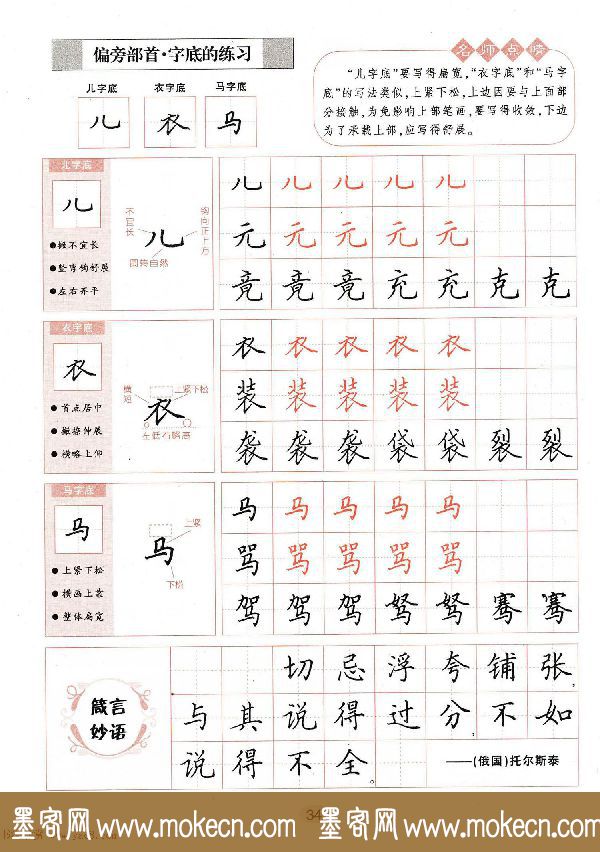 偏旁部首·字底的练习
儿字底 衣字底 马字底
儿 衣 马
名师点睛
“儿字底”要写得扁宽,“衣字底”和“马字
底”的写法类似,上紧下松,上边因要与上面部
分接触,为免影响上部笔画,要写得收敛,下边
为了承载上部,应写得舒展。
儿字底
儿
●撇不宜长
●竖弯钩舒展
●左右齐平
不宜长
钩向正上方
儿
圆曲自然
儿 儿 儿 儿 儿
元 元 元 元 元
竟 竟 竟 充 充 克 克
衣字底
衣
●首点居中
●撇捺伸展
●横略上仰
横短
上紧下松
衣
左低右略高
衣 衣 衣 衣 衣
装 装 装 装 装
袭 袭 袭 袋 袋 裂 裂
马字底
马
●上紧下松
●横画上靠
●整体扁宽
上紧
马
下松
马 马 马 马 马
骂 骂 骂 骂 骂
驾 驾 驾 驽 驽 骞 骞
箴言
妙语
切忌浮夸铺张,
与其说得过分,不如
说得不全。
——(俄国)托尔斯泰
34
墨客网 www.mokecn.com 墨客网 www.mokecn.com